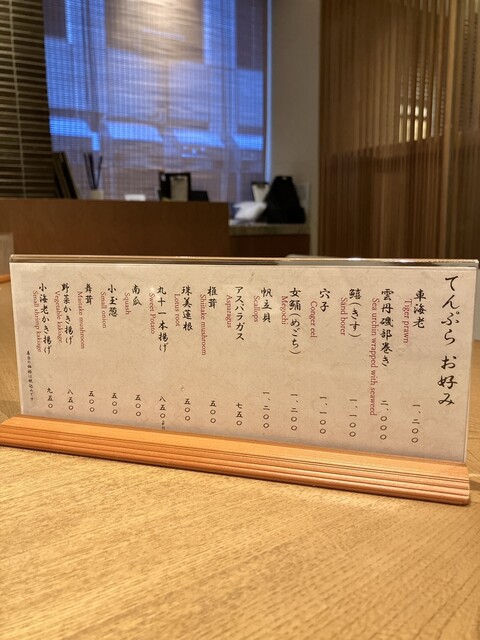 てんぷら お好み
車海老 一、二〇〇
Tiger prawn
雲丹磯部巻き 二、〇〇〇
Sea urchin wrapped with seaweed
鱚(きす) 一、一〇〇
Sand borer
穴子 一、一〇〇
Conger eel
女鯒(めごち) 一、二〇〇
Megochi
帆立貝 一、二〇〇
Scallops
アスパラガス 七五〇
Asparagus
椎茸 五〇〇
Shiitake mushroom
珠美蓮根 五〇〇
Lotus root
丸十一本揚げ 八五〇より
Sweet Potato
南瓜 五〇〇
Squash
小玉葱 五〇〇
Small onion
舞茸 五〇〇
Maitake mushroom
野菜かき揚げ 八五〇
Vegetable kakiage
小海老かき揚げ 九五〇
Small shrimp kakiage
表示の価格は税込みです。